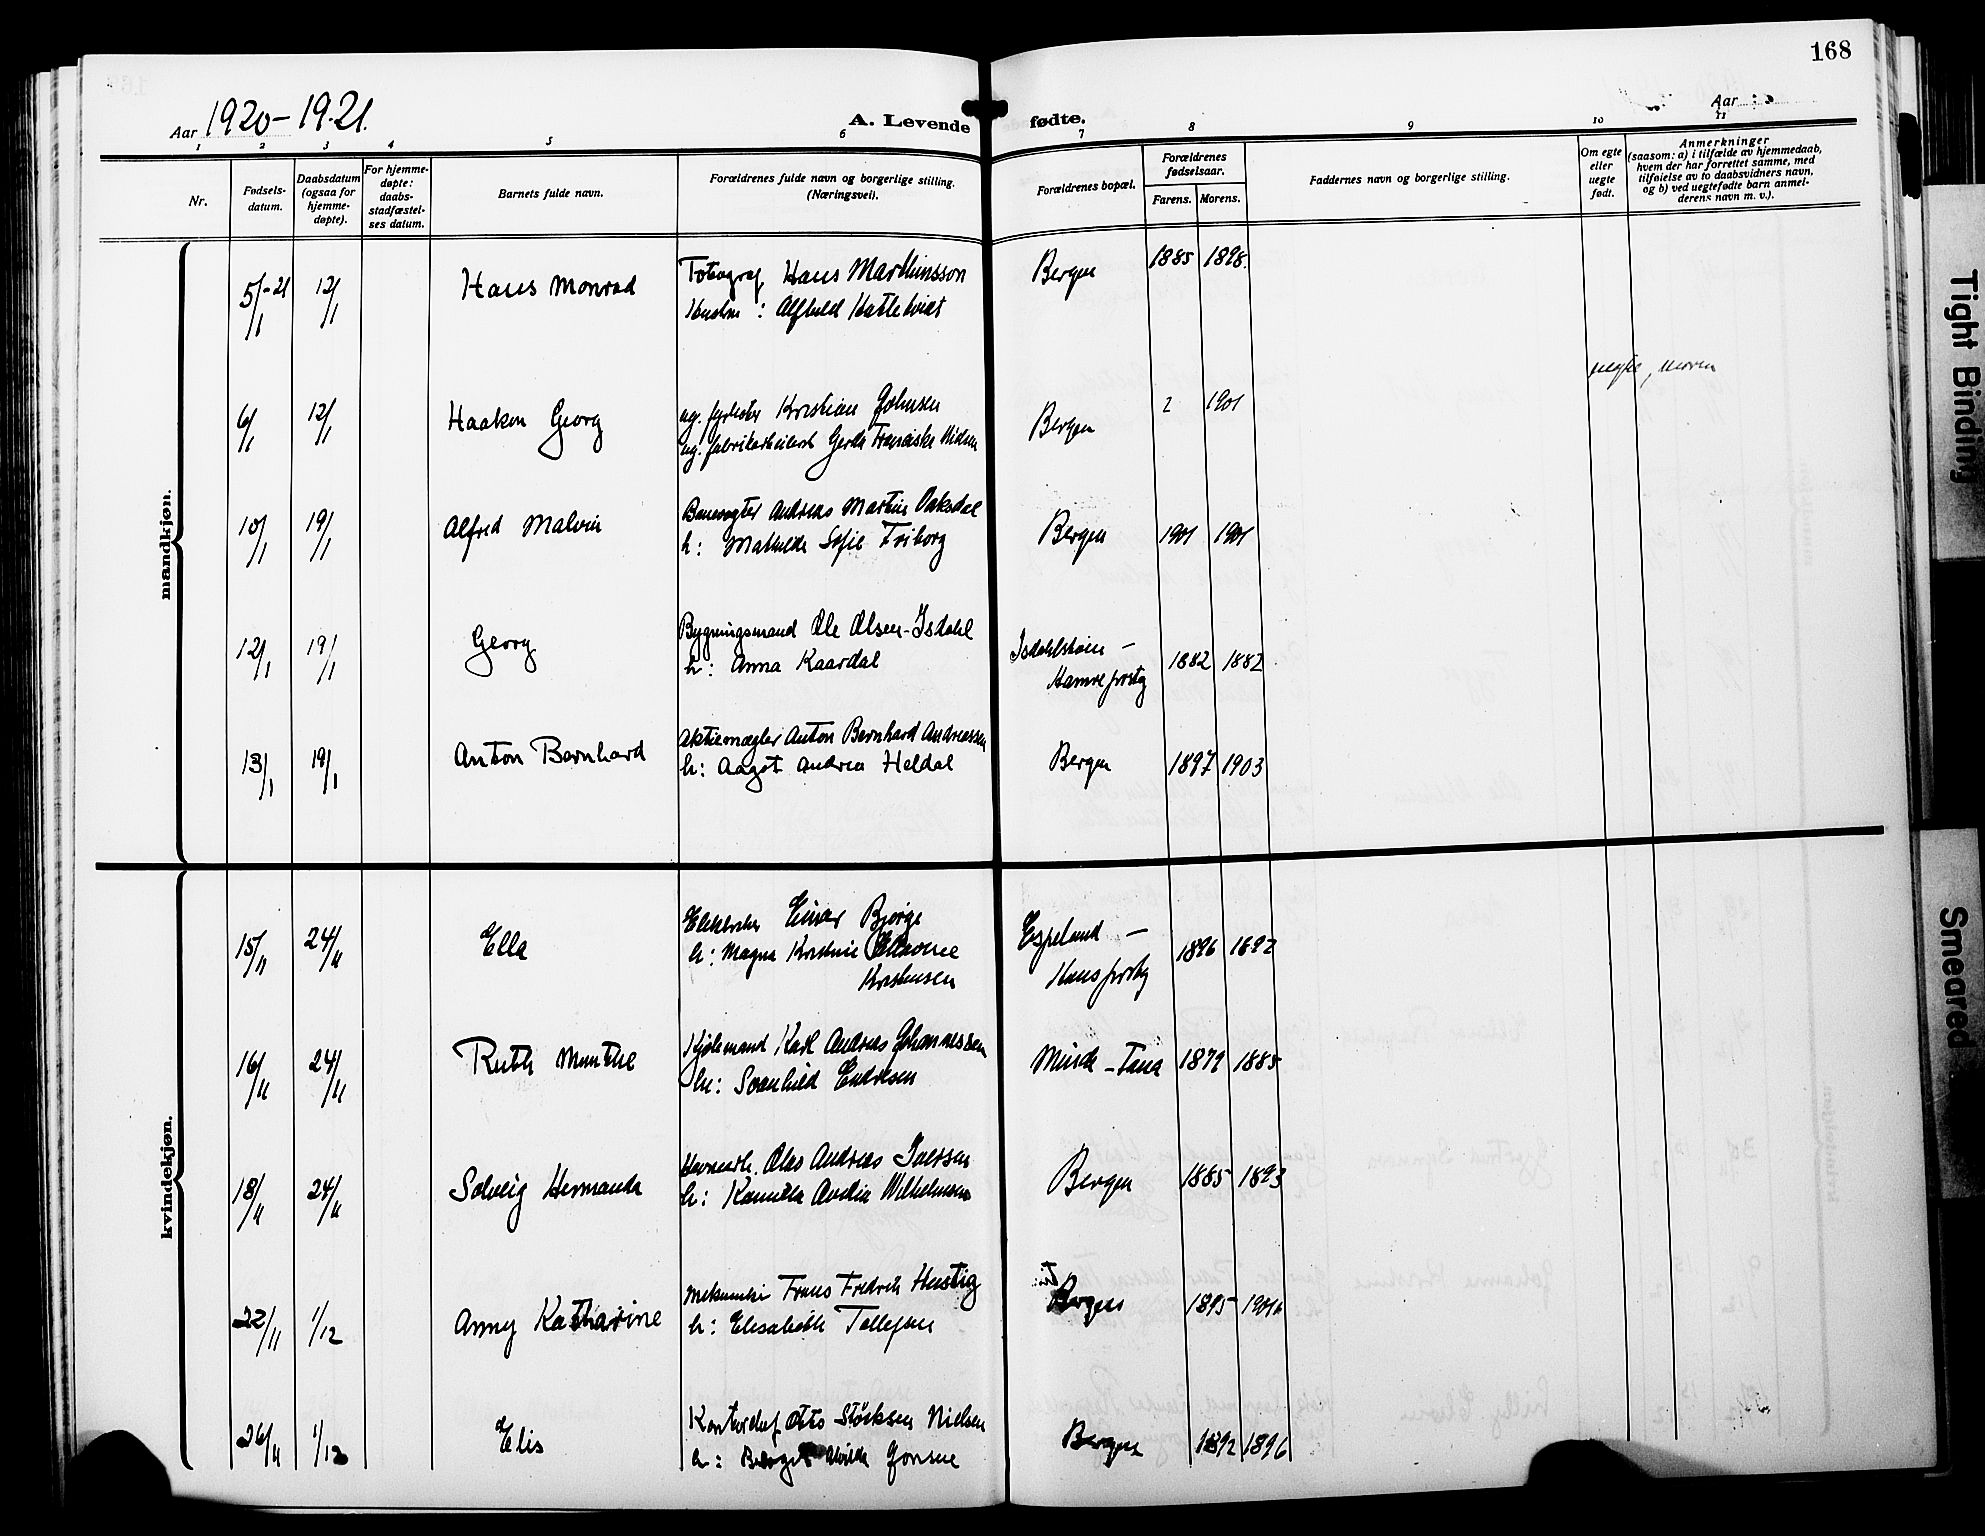 168
Aar 1920-1921.
A. Levende fødte.
Aar
1 2 3 4 5 6 7 8 9 10 11
Nr.
Fødsels-
datum.
Daabsdatum
(ogsaa for
hjemme-
døpte).
For hjemme-
døpte:
daabs-
stadfæstel-
ses datum.
Barnets fulde navn.
Forældrenes fulde navn og borgerlige stilling.
(Næringsvei).
Forældrenes bopæl.
Forældrenes
fødselsaar.
Farens. Morens.
Faddernes navn og borgerlige stilling.
Om egte
eller
uegte
født.
Anmerkninger
(saasom: a) i tilfælde av hjemmedaab,
hvem der har forrettet samme, med
tilføielse av to daabsvidners navn,
og b) ved uegtefødte barn anmel-
derens navn m. v.).
mandkjøn.
5/1-21 12/1 Hans Monrad Fotograf Hans Marthinsson Bergen 1885 1898.
Hustru: Alfhild Hattekvidt
uegte, moren
6/1 12/1 Haakon Georg ug. fyrbøter Kristian Johnsen Bergen 1901
ug. fabrikarbeiderske Gerda Franciska
10/1 19/1 Alfred Malvin Banevogter Andreas Martin Daksdal Bergen 1901 1901
h: Mathilde Sofie Friborg
12/1 19/1 Georg Bygningsmand Ole Olsen-Isdahl Isdahlstøen - 1882 1882
h: Anna Kaardal Hamre prstg
13/1 19/1 Anton Bernhard Aktiemægler Anton Bernhard Andreassen Bergen 1897 1903
h: Aagot Andrea Heldal
kvindekjøn.
15/11 24/11 Ella Elektriker Einar Bjørge Espeland - 1896 1892
h: Magna Kristine
Kristensen Haus prstg
16/11 24/11 Ruth Munthe Kjølemand Karl Andreas Johannessen Minde - Fana 1879 1885
h: Svanhild Endresen
18/11 24/11 Solveig Hermanda Olas Andreas Iversen Bergen 1885 1893
h: Kamilla Wilhelmsen
22/11 1/12 Anny Katharine Mekaniker Frans Fredrik Hustig Bergen 1895
h: Elisabeth Tollefsen
26/11 1/12 Elis Kontorchef Otto Størksen Nielsen Bergen 1892 1896
h: Jonsen
Tight Binding
Smeared